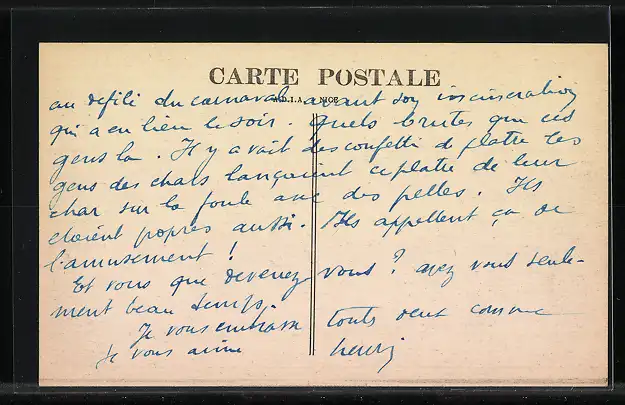 CARTE POSTALE
A.D.I.A. NICE
au defilé du carnaval avant son incineration
qui a eu lieu le soir. Quels brutes que ces
gens la. Il y avait des confetti de platre les
gens des chars lançaient ce platre de leur
char sur la foule avec des pelles. Ils
etaient propres aussi. Ils appellent ça de
l'amusement !
Et vous que devenez vous ? avez vous seule-
ment beau temps.
Je vous embrasse touts deux comme
Je vous aime
henri